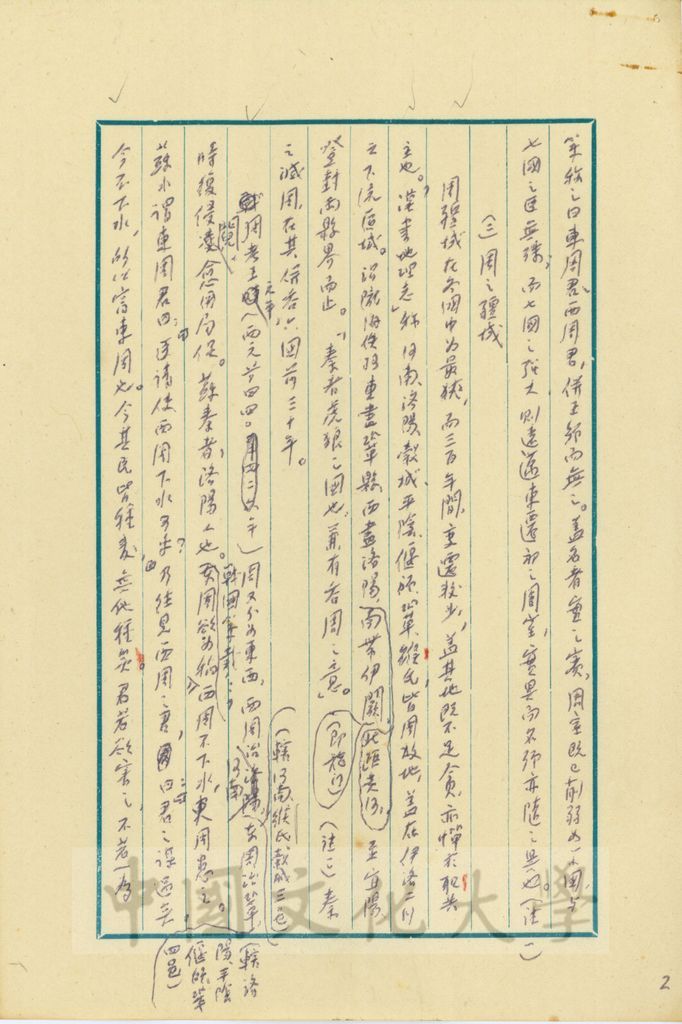 策稱之曰東周君、西周君，併王號而無之。蓋名者實之賓，周室既已削弱如小國，與
七國之臣無殊，而七國之強大則遠邁東遷初之周室，實異而名號亦隨之異也。（註一）
（三）周之疆域
周疆域在各國中為最狹，而三百年間，變遷較少，蓋其地既不足貪，亦憚於取共
主也。漢書地理志稱河南、洛陽、穀城、平陰、偃師、鞏、緱氏皆周故地，蓋在伊洛二川
之下流區域。沿隴海鐵路東盡鞏縣，西盡洛陽，南帶伊闕，北距黃河，並宜陽
登封兩縣界而止。「秦者虎狼之國也，兼有吞周之意」。（即指此）（註二）秦
之滅周，在其併吞六國前三十年。
周考王元年，（西元前四四〇年）周又分為東西，西周治河南，東周治鞏，（轄洛
陽平陰
偃師鞏
四邑）
（轄河南緱氏穀城三邑）
時複侵凌，愈見局促。蘇秦者，洛陽人也。戰國策載：東周欲為稻，西周不下水，東周患之。
蘇子謂東周君曰：臣請使西周下水可乎？乃往見西周之君曰：君之謀過矣
今不下水，所以富東周也。今其民皆種麥，無他種矣。君若欲害之，不若一為
中國文化大學
2